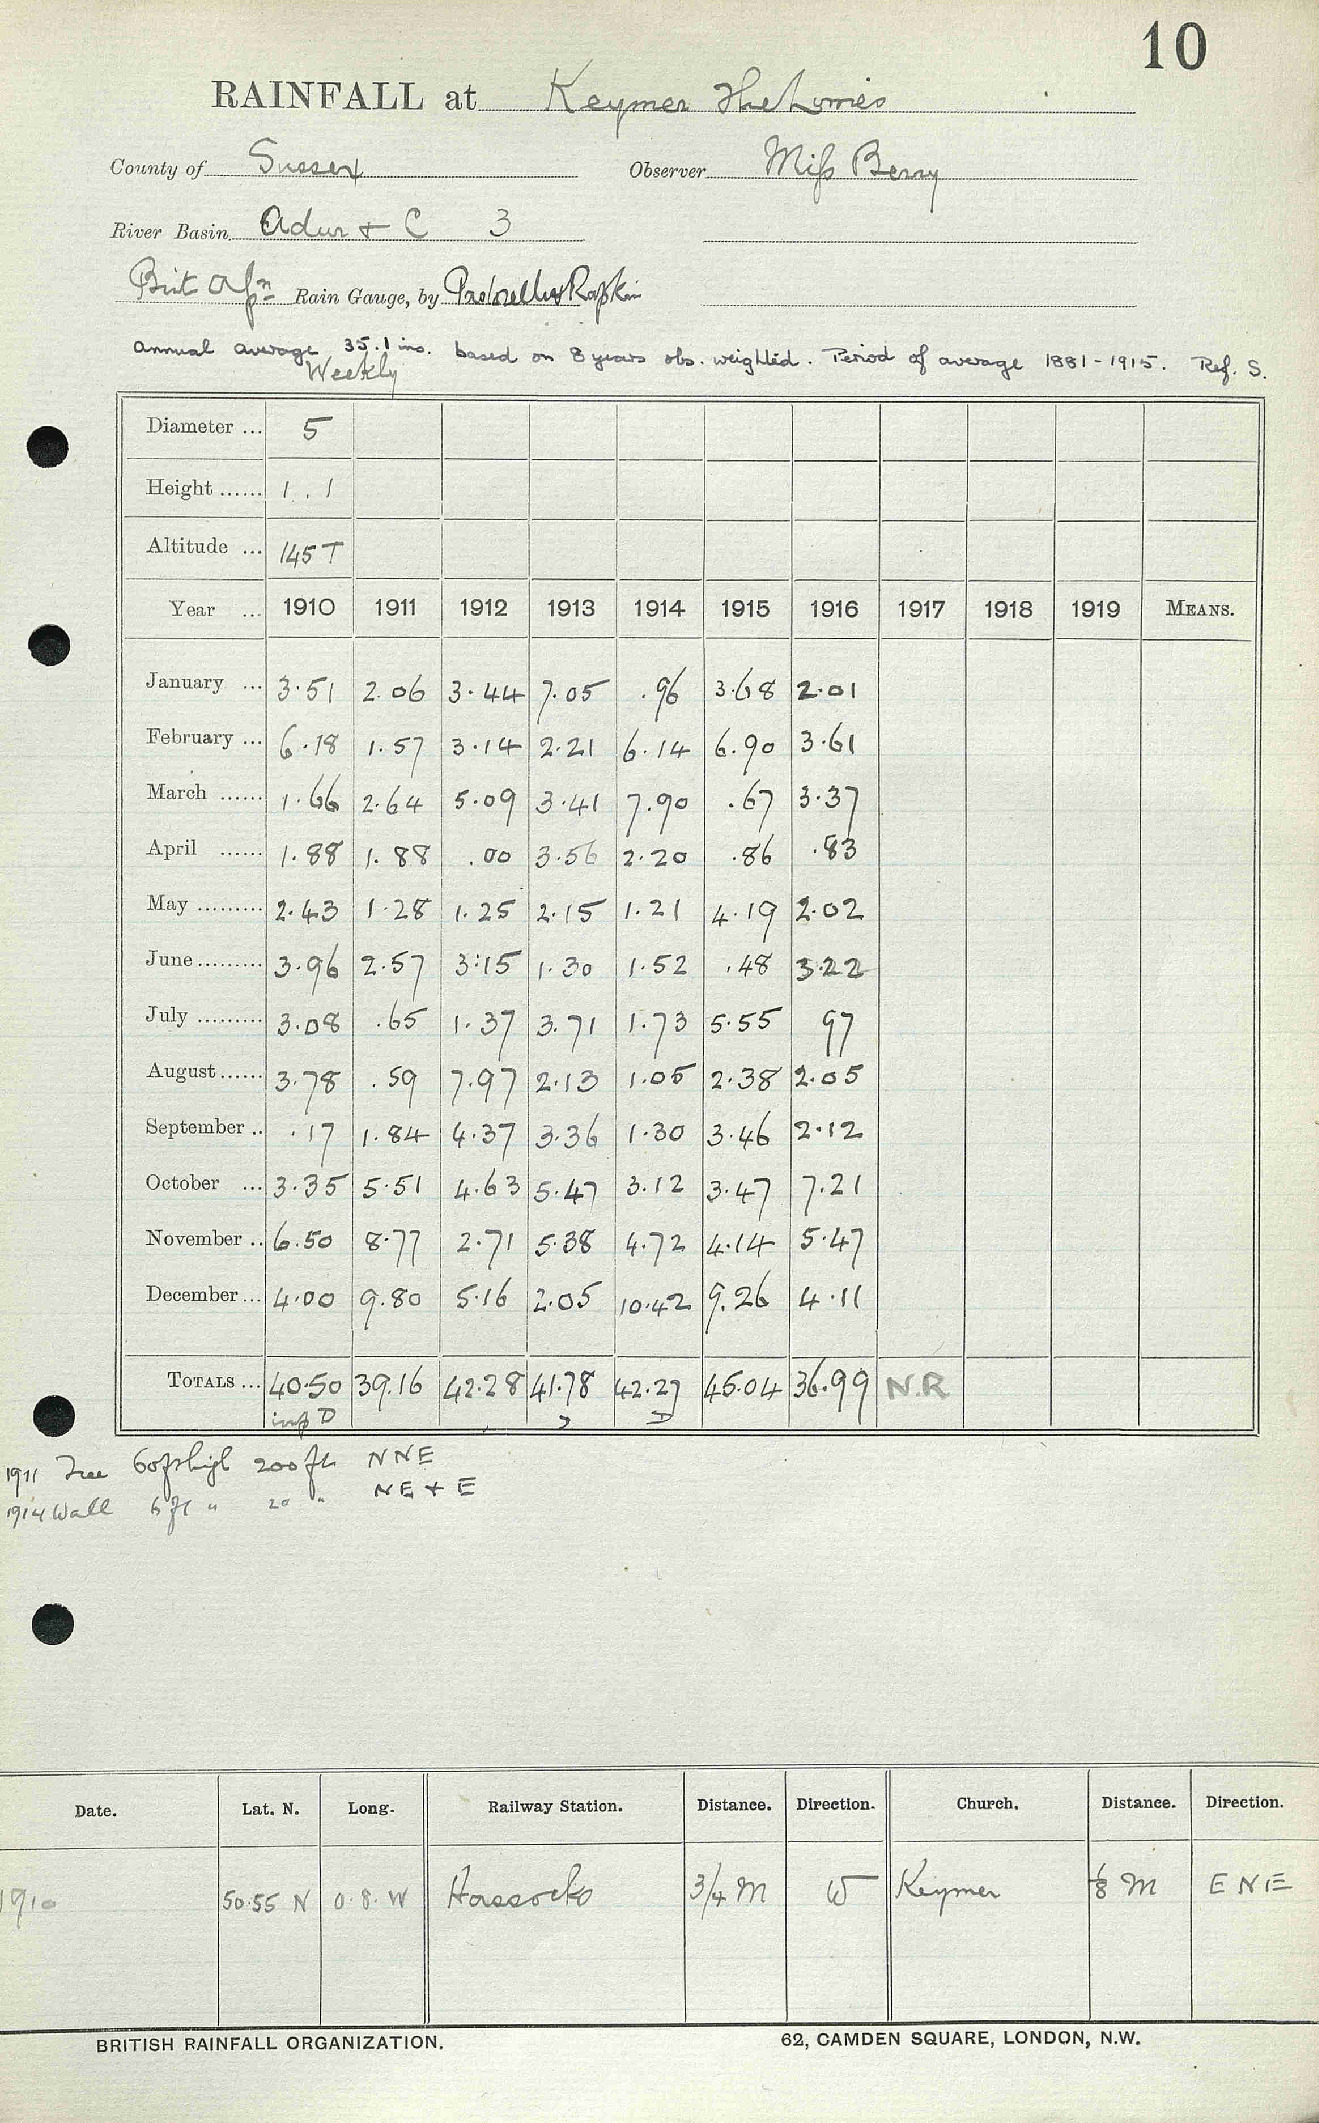 10
RAINFALL at Keymer The Lorries
County of Sussex Observer Miss Berry
River Basin. Adur & C 3
Brit Assn Rain Gauge, by Rapkin
Annual average 35.1 ins. based on 8 years obs. weighted. Period of average 1881-1915. Ref. S.
Weekly
Diameter ... 5
Height ...... 1.1
Altitude ... 145 T
Year ... 1910 1911 1912 1913 1914 1915 1916 1917 1918 1919 MEANS.
January ... 3.51 2.06 3.44 7.05 .96 3.68 2.01
February ... 6.18 1.57 3.14 2.21 6.14 6.90 3.61
March ...... 1.66 2.64 5.09 3.41 7.90 .67 3.37
April ...... 1.88 1.88 .00 3.56 2.20 .86 .83
May ......... 2.43 1.28 1.25 2.15 1.21 4.19 2.02
June ......... 3.96 2.57 3.15 1.30 1.52 .48 3.22
July ......... 3.08 .65 1.37 3.71 1.73 5.55 97
August ...... 3.78 .59 7.97 2.13 1.05 2.38 2.05
September .. .17 1.84 4.37 3.36 1.30 3.46 2.12
October ... 3.35 5.51 4.63 5.47 3.12 3.47 7.21
November .. 6.50 8.77 2.71 5.38 4.72 4.14 5.47
December ... 4.00 9.80 5.16 2.05 10.42 9.26 4.11
TOTALS ... 40.50 39.16 42.28 41.78 42.27 45.04 36.99 N.R
D
1911 Tree 60ft high 200 ft NNE
1914 Wall 6 ft " 20 " NE & E
Date. Lat. N. Long. Railway Station. Distance. Direction. Church. Distance. Direction.
1910 50.55 N 0.8.W Hassocks 3/4 M W Keymer 1/8 M ENE
BRITISH RAINFALL ORGANIZATION. 62, CAMDEN SQUARE, LONDON, N.W.